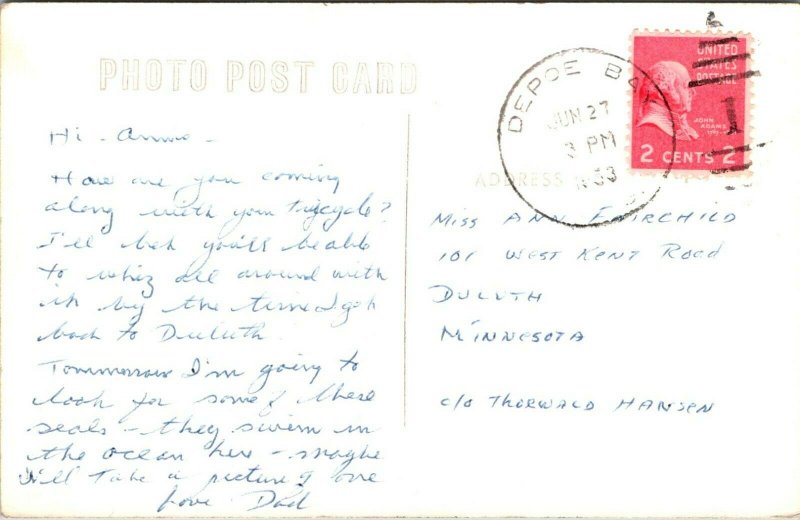 PHOTO POST CARD
DEPOE BAY
JUN 27
3 PM
1953
UNITED
STATES
POSTAGE
JOHN
ADAMS
2 CENTS 2
1
ADDRESS
Hi - Anne -
How are you coming
along with your Trycycle?
I'll bet you'll be able
to whiz all around with
it by the time I get
back to Duluth.
Tommorrow I'm going to
look for some of these
seals - they swim in
the ocean here - maybe
I'll take a picture of one
Love Dad
MISS ANN FAIRCHILD
101 WEST KENT ROAD
DULUTH
MINNESOTA
c/o THORWALD HANSEN